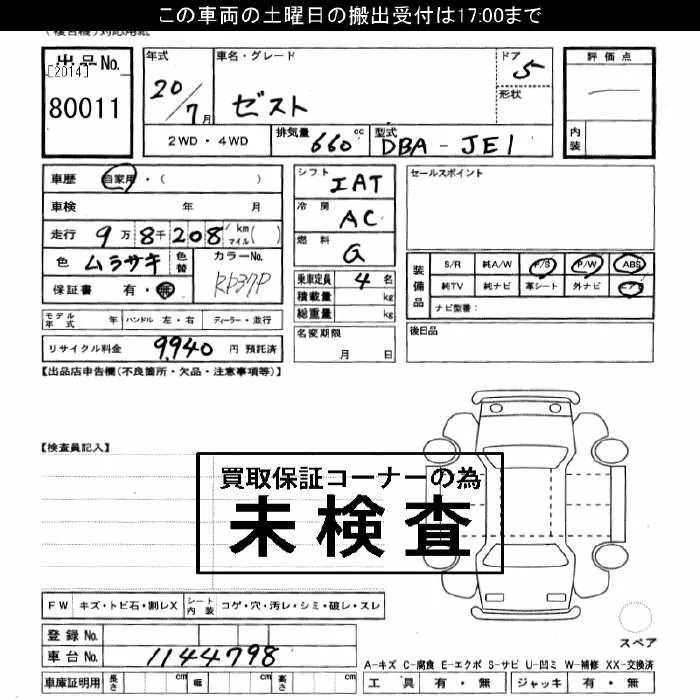 この車両の土曜日の搬出受付は17:00まで
出品No.
[2014]
80011
年式
20/7月
車名・グレード
ゼスト
ドア
5
形状
評価点
内装
2WD・4WD
排気量
660 cc
型式
DBA-JE1
車歴 自家用・( )
車検 年 月
走行 9万8千208 km マイル( )
色 ムラサキ 色替
カラーNo.
RP37P
保証書 有・無
シフト
IAT
冷房
AC
燃料
G
乗車定員 4 名
積載量 kg
総重量 kg
セールスポイント
装備品
S/R 純A/W P/S P/W ABS
純TV 純ナビ 革シート 外ナビ エアB
ナビ型番:
モデル年式 年 ハンドル 左・右 ディーラー・並行
名変期限
月 日
後日品
リサイクル料金 9,940 円 預託済
【出品店申告欄(不良箇所・欠品・注意事項等)】
【検査員記入】
買取保証コーナーの為
未検査
FW キズ・トビ石・割レX シート内装 コゲ・穴・汚レ・シミ・破レ・スレ
登録No.
車台No. 1144798
車庫証明用 長さ cm 幅 cm 高さ cm
スペア
A-キズ C-腐食 E-エクボ S-サビ U-凹ミ W-補修 XX-交換済
工具 有・無 ジャッキ 有・無